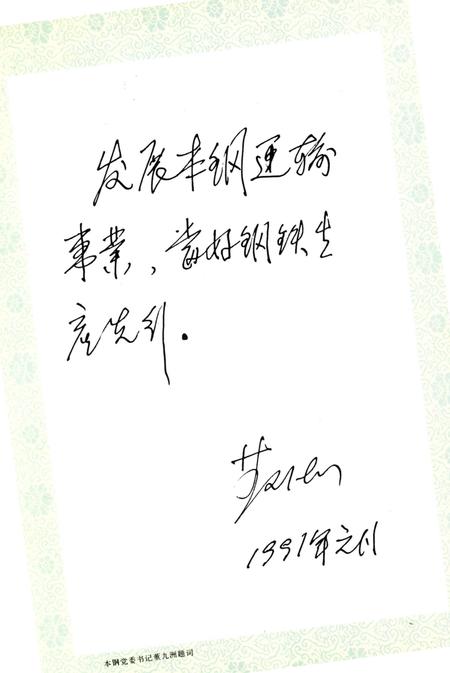 发展本钢运输
事業、当好钢铁生
产先行.
董九洲
1991年元月
本钢党委书记董九洲题词